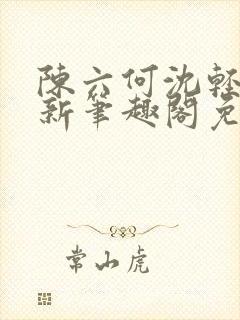 陳六何沈輕
新筆趣閣免
常山虎